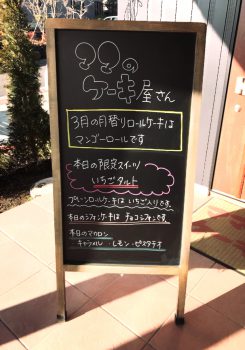 ママの
ケーキ屋さん
3月の月替りロールケーキは
マンゴーロールです
本日の限定スイーツ
いちごタルト
プレーンロールケーキは いちご入りです
本日のシフォンケーキは チョコシフォンです
本日のマカロン
キャラメル・レモン・ピスタチオ